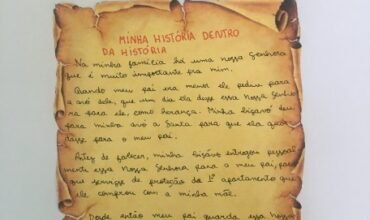 MINHA HISTÓRIA DENTRO
DA HISTÓRIA
Na minha família há uma nossa Senhora
que é muito importante pra mim.
Quando meu pai era menor ele pediu para
a avó dela, que um dia ela desse essa Nossa Senho
ra para ele, como herança. Minha bisavó deu
para minha avó a Santa para que ela guar
dasse para o meu pai.
Antes de falecer, minha bisavó entregou pessoal
mente essa Nossa Senhora para o meu pai, para
que servisse de proteção do 1º apartamento que
ele comprou com a minha mãe.
Desde então meu pai guarda essa Nossa